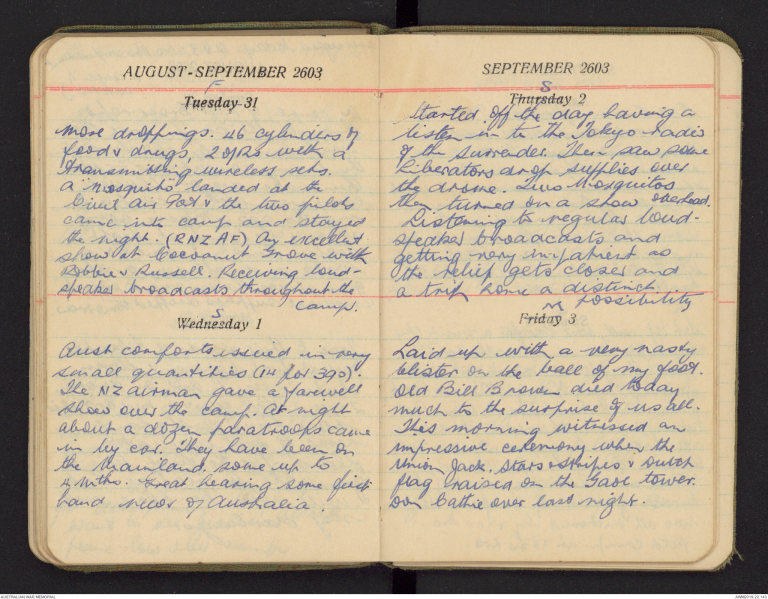 AUGUST-SEPTEMBER 2603
F
Tuesday 31
more droppings. 46 cylinders of
food & drugs, 2 of Rs with a
transmitting wireless sets.
a "mosquito" landed at the
Civil air Port & the two pilots
came into camp and stayed
the night. (RNZAF) An excellent
show at Cocoanut Grove with
Bobbie & Russell. Receiving loud-
speaker broadcasts throughout the
Camp.
S
Wednesday 1
Aust comforts issued in very
small quantities (14 for 390).
The NZ airman gave a farewell
show over the camp. At night
about a dozen paratroops came
in by car. They have been on
the mainland some up to
4 mths. Great hearing some first
hand news of Australia.
SEPTEMBER 2603
S
Thursday 2
Started off the day having a
listen in to the Tokyo radio
of the surrender. Then saw some
Liberators drop supplies over
the drome. Two Mosquitos
then turned on a show overhead.
Listening to regular loud-
speaker broadcasts and
getting very impatient as
the relief gets closer and
a trip home a distinct
possibility
M
Friday 3
Laid up with a very nasty
blister on the ball of my foot.
Old Bill Brown died today
much to the surprise of us all.
This morning witnessed an
impressive ceremony when the
Union Jack, Stars & Stripes & Dutch
flag raised on the Gaol tower.
Don Cattie over last night.
AUSTRALIAN WAR MEMORIAL